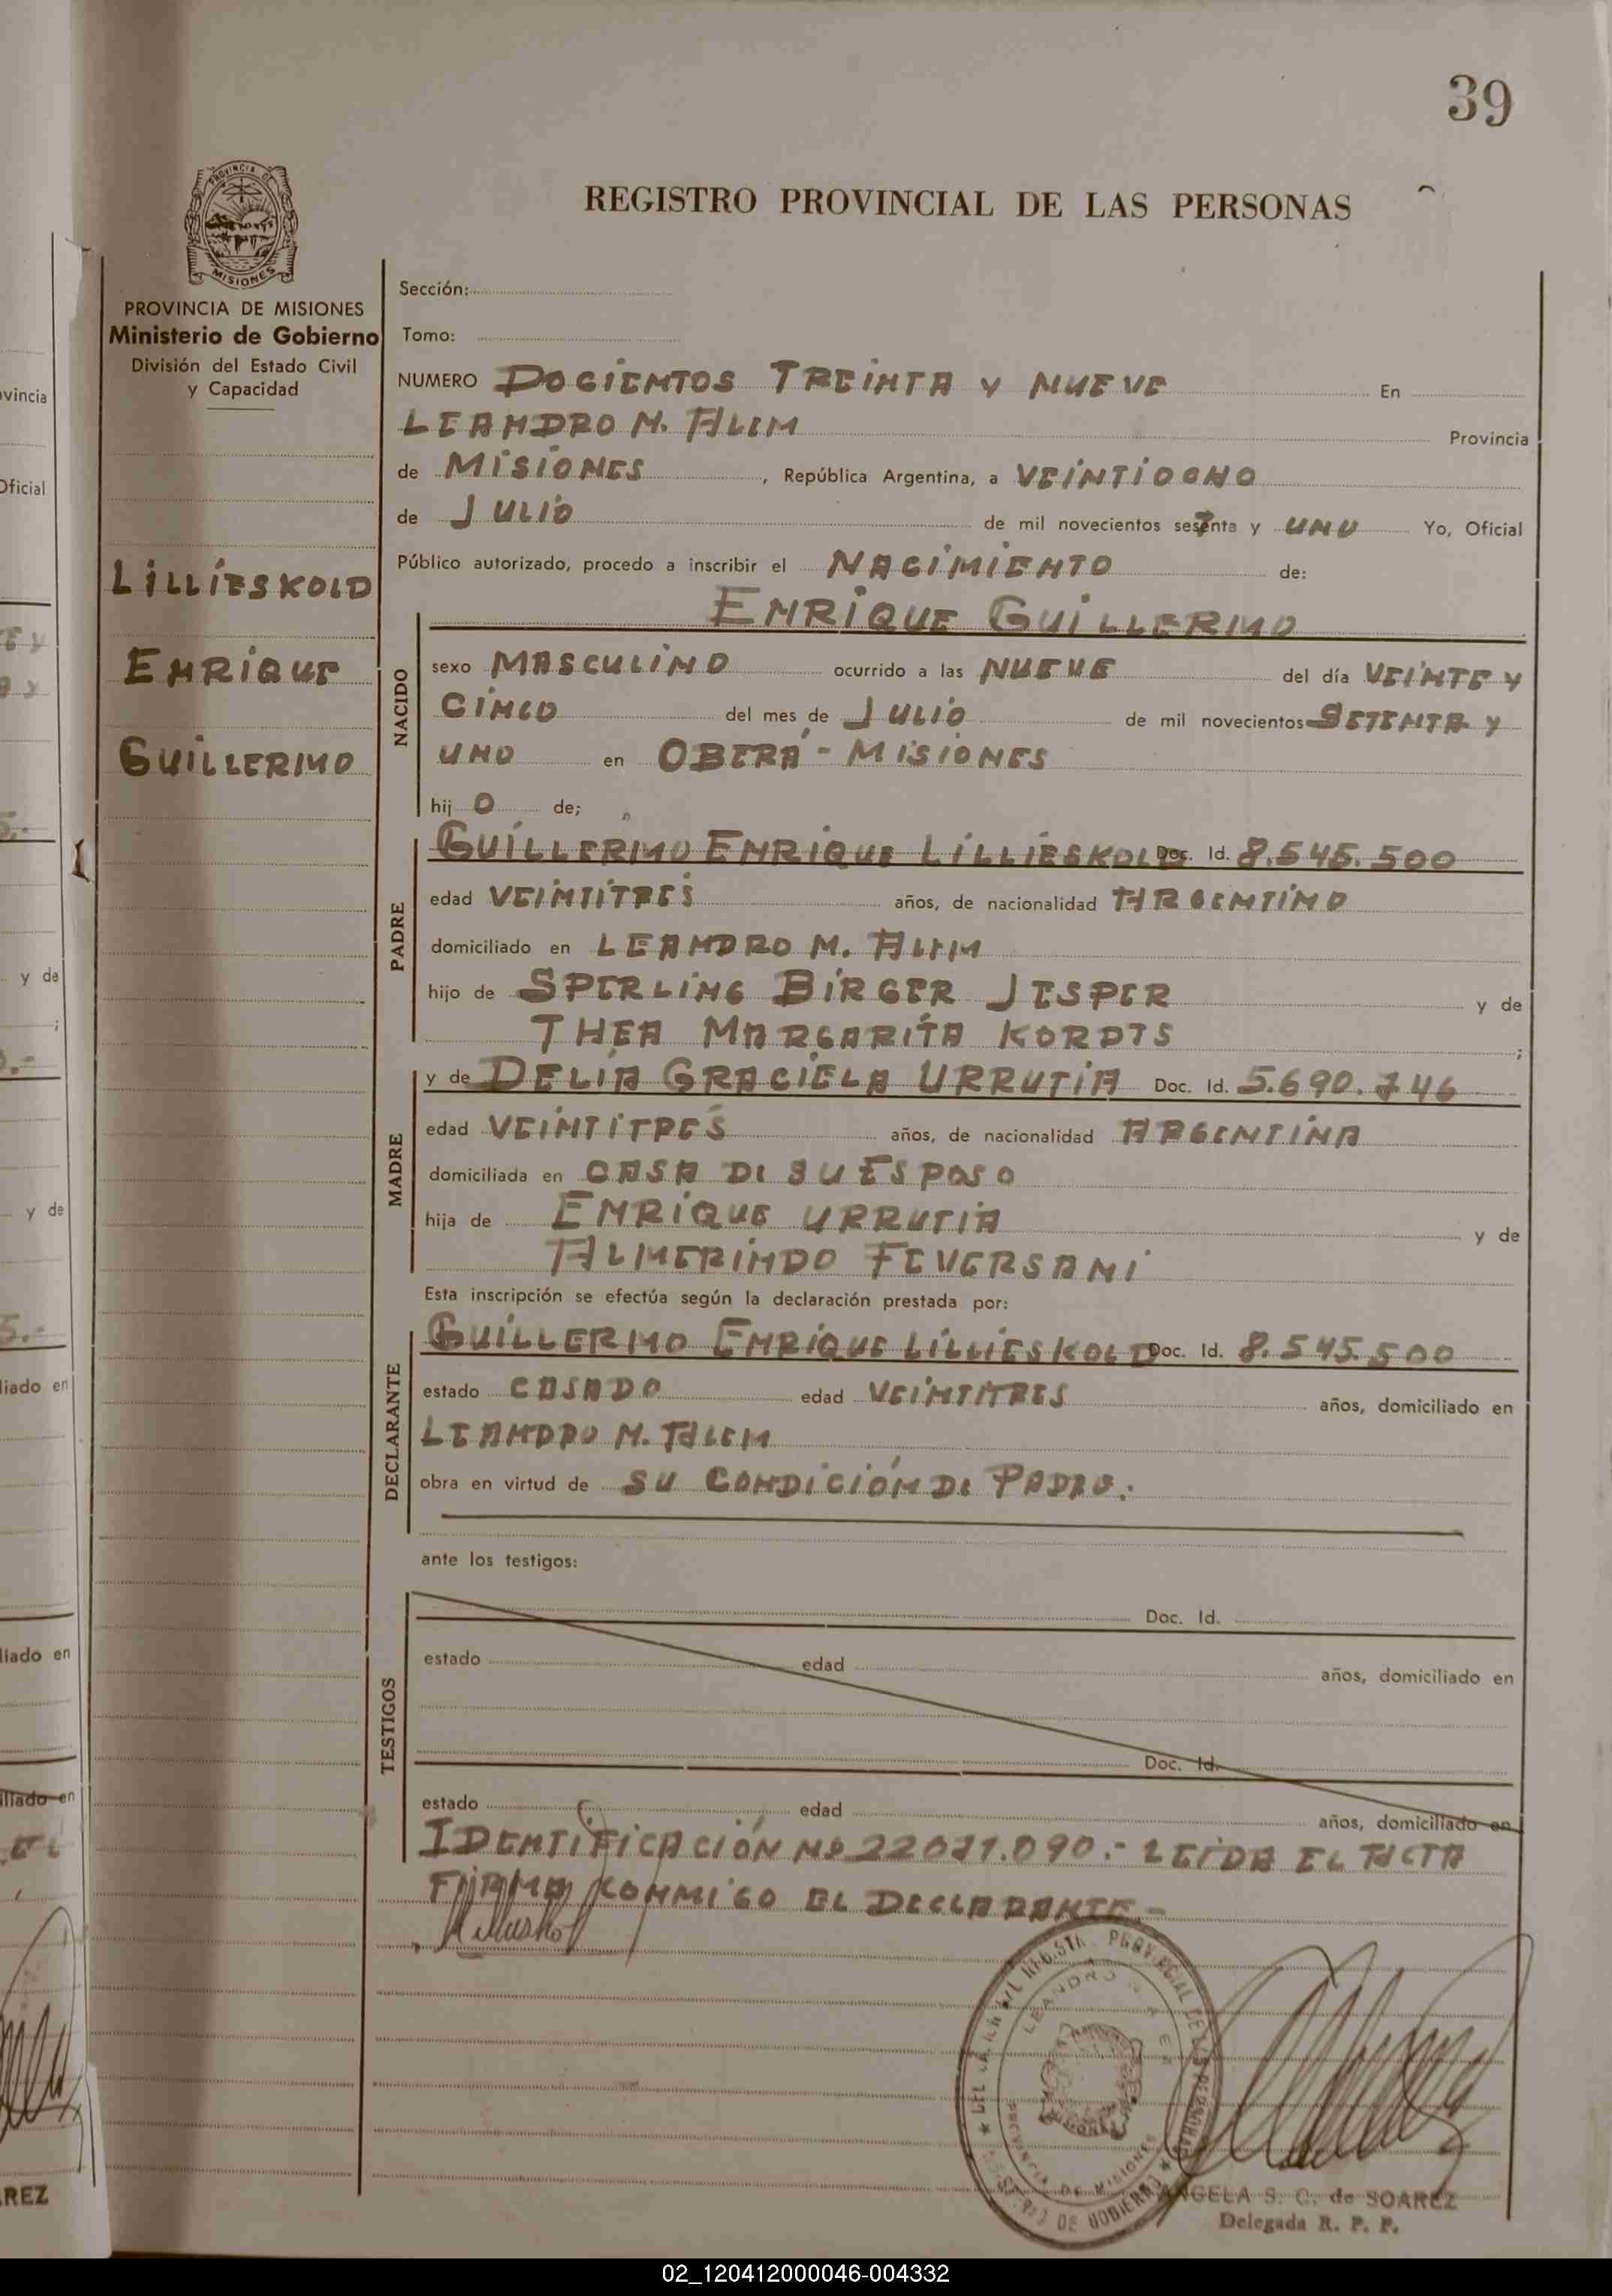 39
REGISTRO PROVINCIAL DE LAS PERSONAS
PROVINCIA DE
MISIONES
PROVINCIA DE MISIONES
Ministerio de Gobierno
División del Estado Civil
y Capacidad
LILLIESKOLD
ENRIQUE
GUILLERMO
Sección:
Tomo:
NUMERO DOCIENTOS TREINTA Y NUEVE En
LEANDRO N. ALEM Provincia
de MISIONES, República Argentina, a VEINTIOCHO
de JULIO de mil novecientos setenta y UNO Yo, Oficial
Público autorizado, procedo a inscribir el NACIMIENTO de:
ENRIQUE GUILLERMO
NACIDO
sexo MASCULINO ocurrido a las NUEVE del día VEINTE Y
CINCO del mes de JULIO de mil novecientos SETENTA Y
UNO en OBERÁ - MISIONES
hij O de;
PADRE
GUILLERMO ENRIQUE LILLIESKOLD Doc. Id. 8.545.500
edad VEINTITRES años, de nacionalidad ARGENTINO
domiciliado en LEANDRO N. ALEM
hijo de SPERLING BIRGER JESPER y de
THEA MARGARITA KORDTS ;
MADRE
y de DELIA GRACIELA URRUTIA Doc. Id. 5.690.746
edad VEINTITRES años, de nacionalidad ARGENTINA
domiciliada en CASA DE SU ESPOSO
hija de ENRIQUE URRUTIA y de
ALMERINDO FEVERSANI
Esta inscripción se efectúa según la declaración prestada por:
DECLARANTE
GUILLERMO ENRIQUE LILLIESKOLD Doc. Id. 8.545.500
estado CASADO edad VEINTITRES años, domiciliado en
LEANDRO N. ALEM
obra en virtud de SU CONDICIÓN DE PADRE.
ante los testigos:
TESTIGOS
Doc. Id.
estado edad años, domiciliado en
Doc. Id.
estado edad años, domiciliado en
IDENTIFICACIÓN Nº 22071.090.- LEIDA EL ACTA
FIRMA CONMIGO EL DECLARANTE.-
PROVINCIA DE MISIONES
ANGELA S. C. de SOAREZ
Delegada R. P. P.
vincia
Oficial
y de
y de
liado en
liado en
REZ
02_120412000046-004332